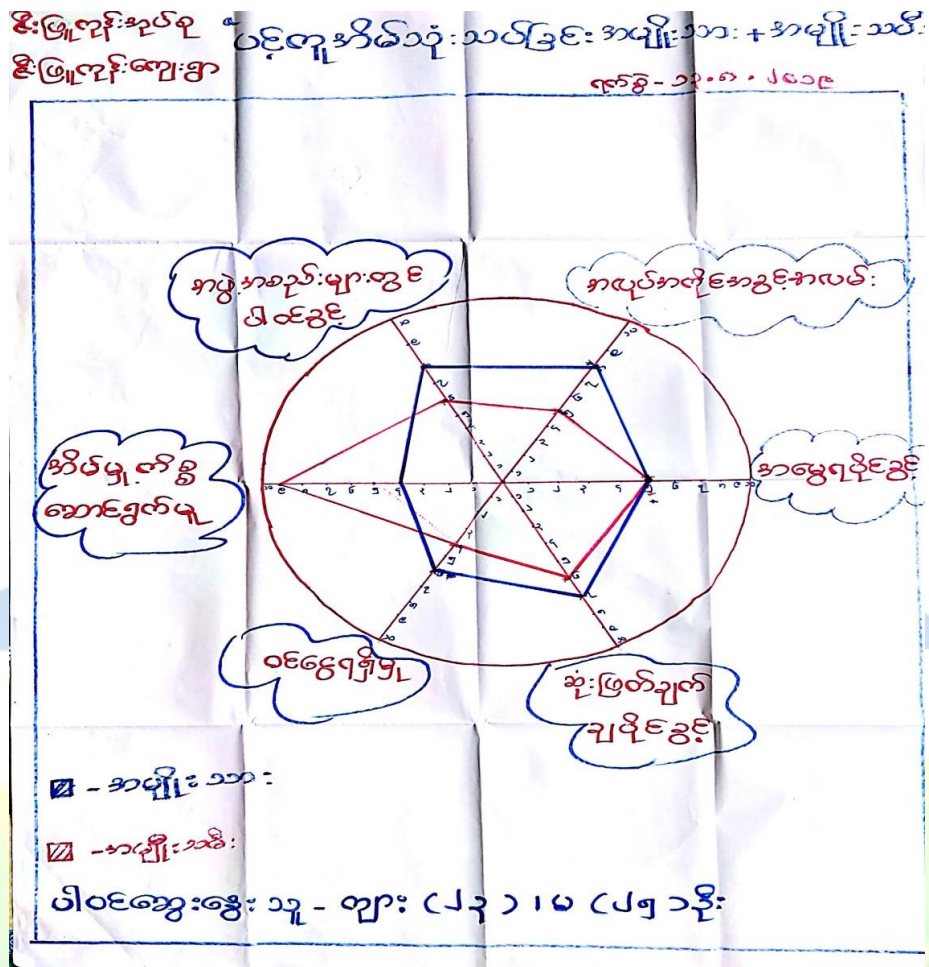 ဇီးဖြူကုန်းအုပ်စု
ပင့်ကူအိမ်သုံးသပ်ခြင်း အမျိုးသား + အမျိုးသမီး
ဇီးဖြူကုန်းကျေးရွာ
ရက်စွဲ -
အဖွဲ့အစည်းများတွင်
ပါဝင်ခွင့်
အလုပ်အကိုင်အခွင့်အလမ်း
အိမ်မှုကိစ္စ
ဆောင်ရွက်မှု
အမွေရပိုင်ခွင့်
ဝင်ငွေရရှိမှု
ဆုံးဖြတ်ချက်
ချပိုင်ခွင့်
- အမျိုးသား
- အမျိုးသမီး
ပါဝင်ဆွေးနွေးသူ - ကျား (၂၃) ၊ မ (၂၅) ဦး